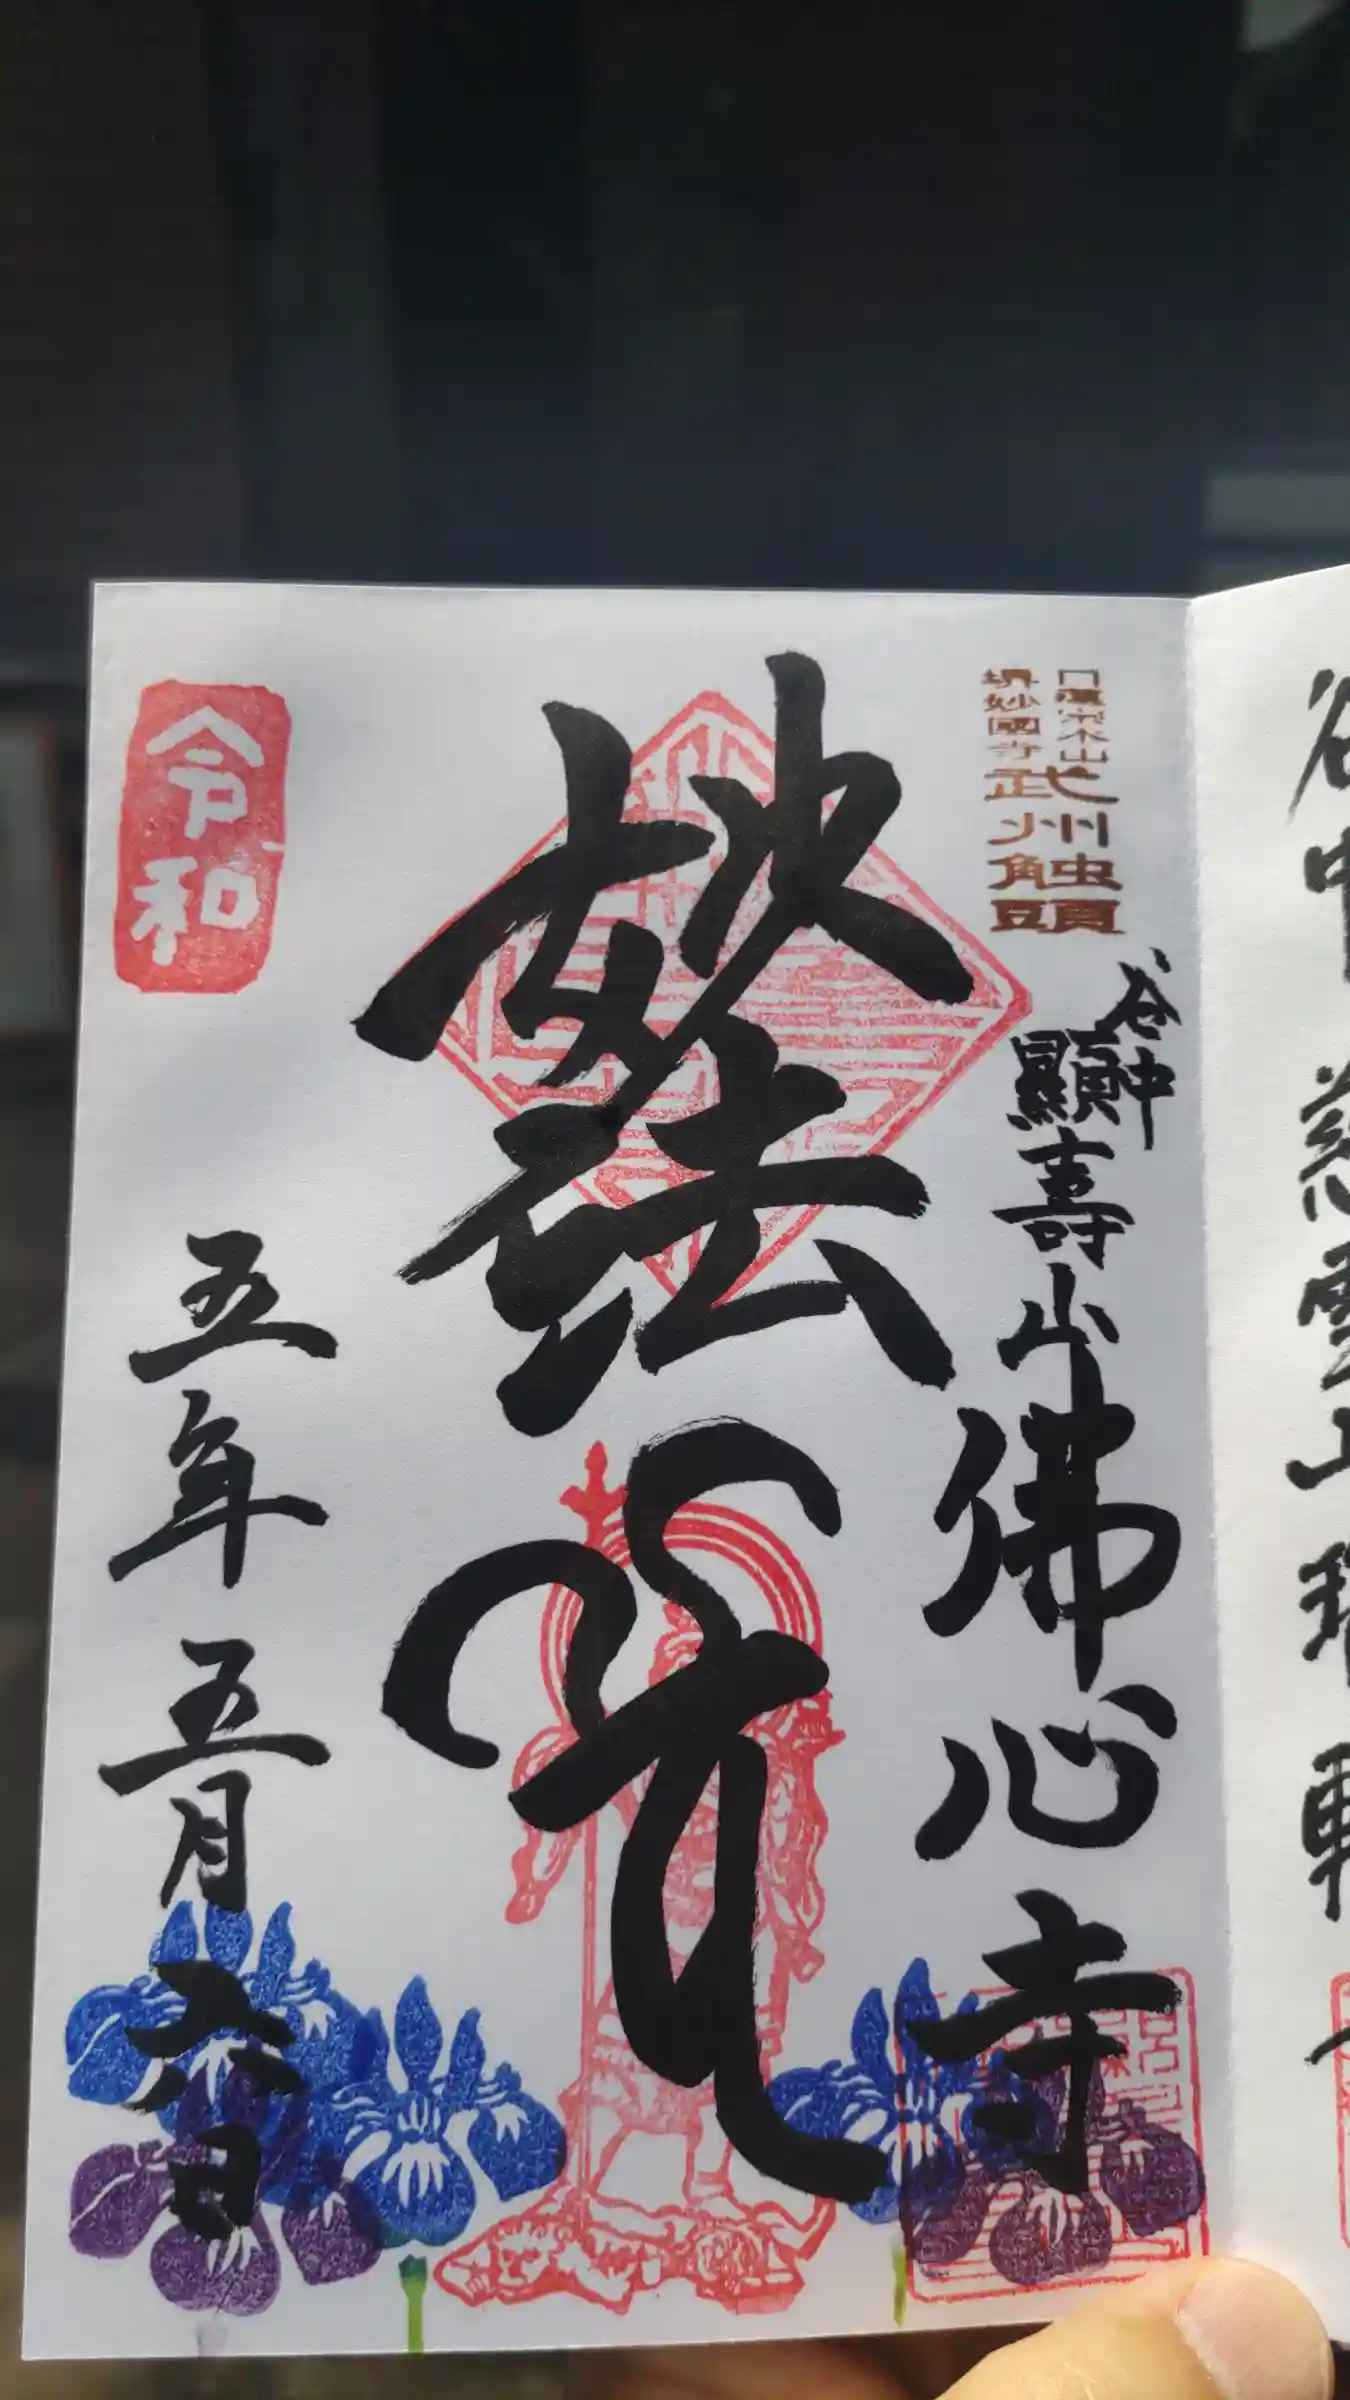 日蓮宗本山
堺妙國寺
武州触頭
谷中
顯壽山佛心寺
妙法
令和
五年五月六日
谷中
慈雲山瑞輪